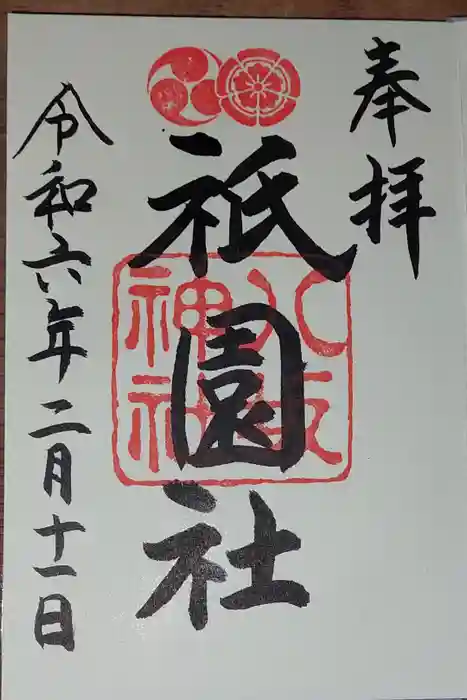 奉拝
祇園社
八坂
神社
令和六年二月十一日